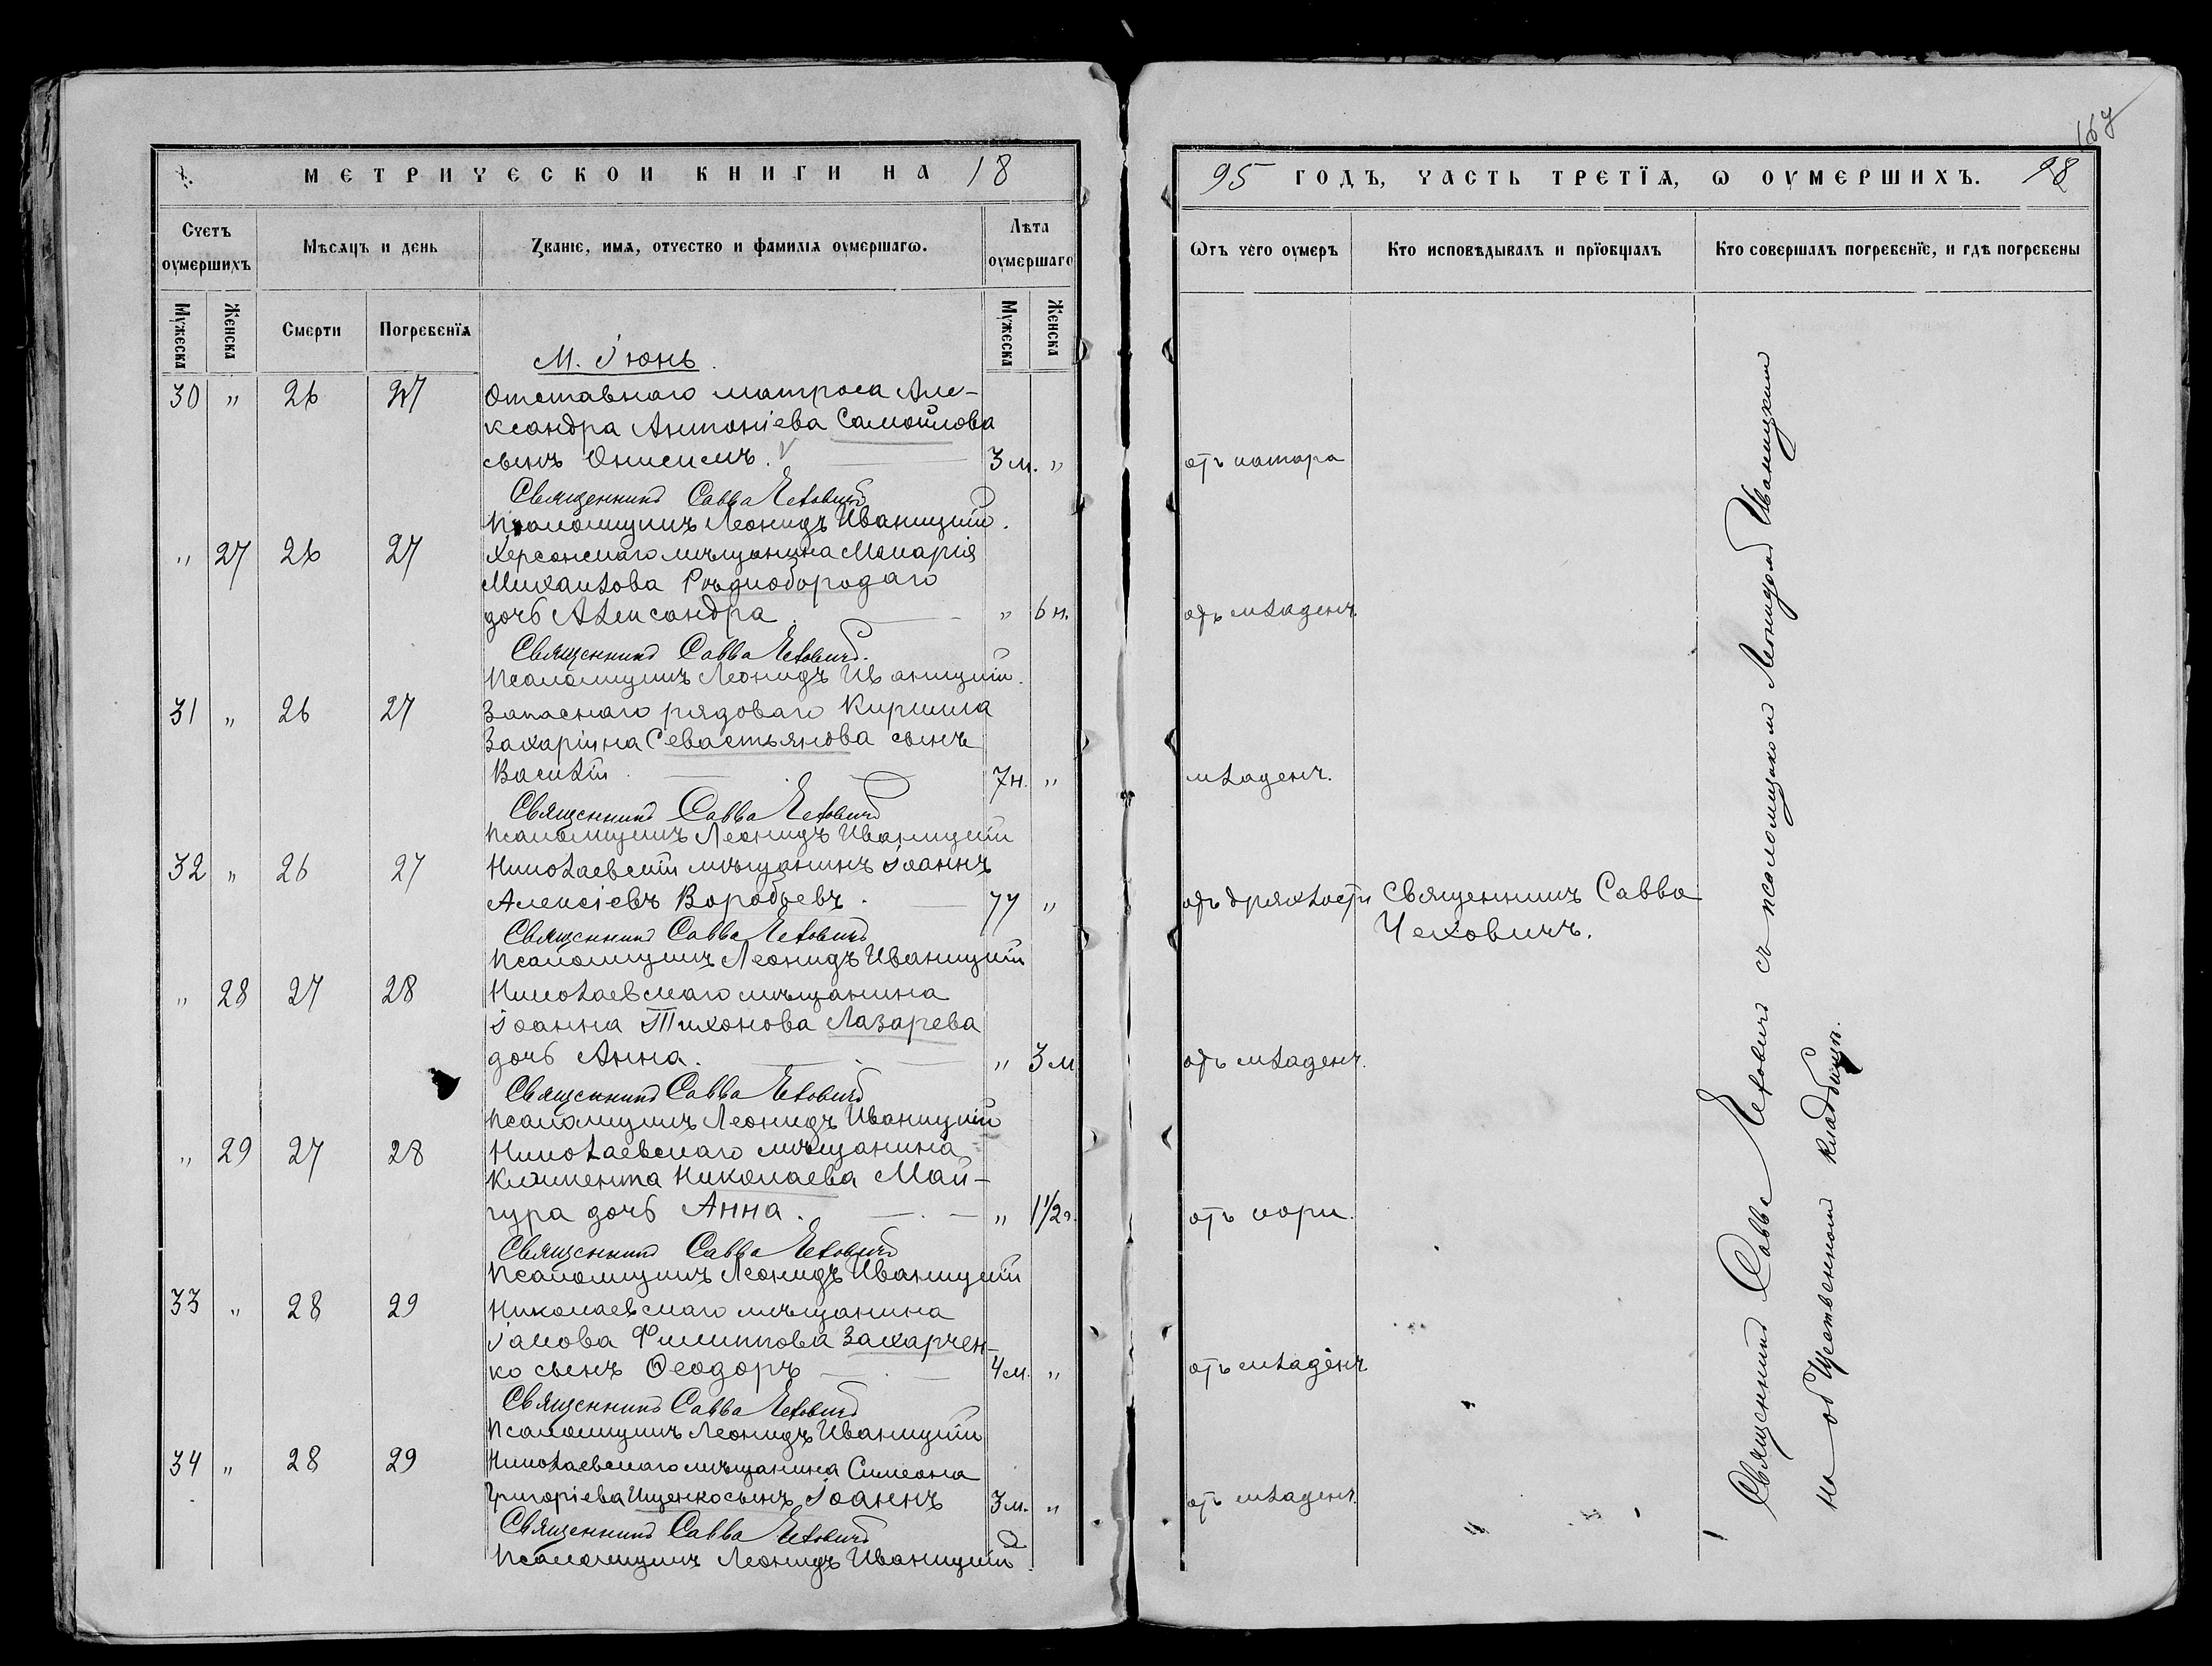 МЕТРИЧЕСКОИ КНИГИ НА 18
Счетъ оумершихъ
Мѣсяцъ и день
Званіе, имя, отчество и фамилія оумершагω.
Лѣта оумершаго
Мужеска
Женска
Смерти
Погребенїя
Мужеска
Женска
М. Іюнь.
30 " 26 27 Отставнаго матроса Але-
ксандра Антоніева Самойлова
сынъ Онисимъ. 3 м. "
Священникъ Савва Чеховичъ
Псаломщикъ Леонидъ Иваницкій.
" 27 26 27 Херсонскаго мѣщанина Макарія
Михаилова Рѣдкобородаго
дочь Александра " 6 н.
Священникъ Савва Чеховичъ.
Псаломщикъ Леонидъ Иваницкій.
31 " 26 27 Запаснаго рядоваго Кирилла
Захаріина Севастьянова сынъ
Василій 7 н. "
Священникъ Савва Чеховичъ
Псаломщикъ Леонидъ Иваницкій
32 " 26 27 Николаевскій мѣщанинъ Іоаннъ
Алексіевъ Воробьевъ. 77 "
Священникъ Савва Чеховичъ
Псаломщикъ Леонидъ Иваницкій
" 28 27 28 Николаевскаго мѣщанина
Іоанна Тихонова Лазарева
дочь Анна. " 3 м
Священникъ Савва Чеховичъ
Псаломщикъ Леонидъ Иваницкій
" 29 27 28 Николаевскаго мѣщанина
Климента Николаева Май-
гура дочь Анна. " 1 1/2 г.
Священникъ Савва Чеховичъ
Псаломщикъ Леонидъ Иваницкій
33 " 28 29 Николаевскаго мѣщанина
Іакова Филиппова Захарчен-
ко сынъ Ѳеодоръ 4 м. "
Священникъ Савва Чеховичъ
Псаломщикъ Леонидъ Иваницкій
34 " 28 29 Николаевскаго мѣщанина Симеона
Григоріева Ищенко сынъ Іоаннъ 3 м. "
Священникъ Савва Чеховичъ
Псаломщикъ Леонидъ Иваницкій
167
95 ГОДЪ, ЧАСТЬ ТРЕТЇЯ, Ѡ ОУМЕРШИХЪ. 98
Ѡтъ чего оумеръ
Кто исповѣдывалъ и прїобщалъ
Кто совершалъ погребенїе, и гдѣ погребены
отъ катара
отъ младенч.
младенч.
отъ дряхлости Священникъ Савва
Чеховичъ.
отъ младенч.
отъ кори.
отъ младенч
отъ младенч.
Священникъ Савва Чеховичъ съ псаломщикомъ Леонидомъ Иваницкимъ
на общественномъ кладбищѣ.